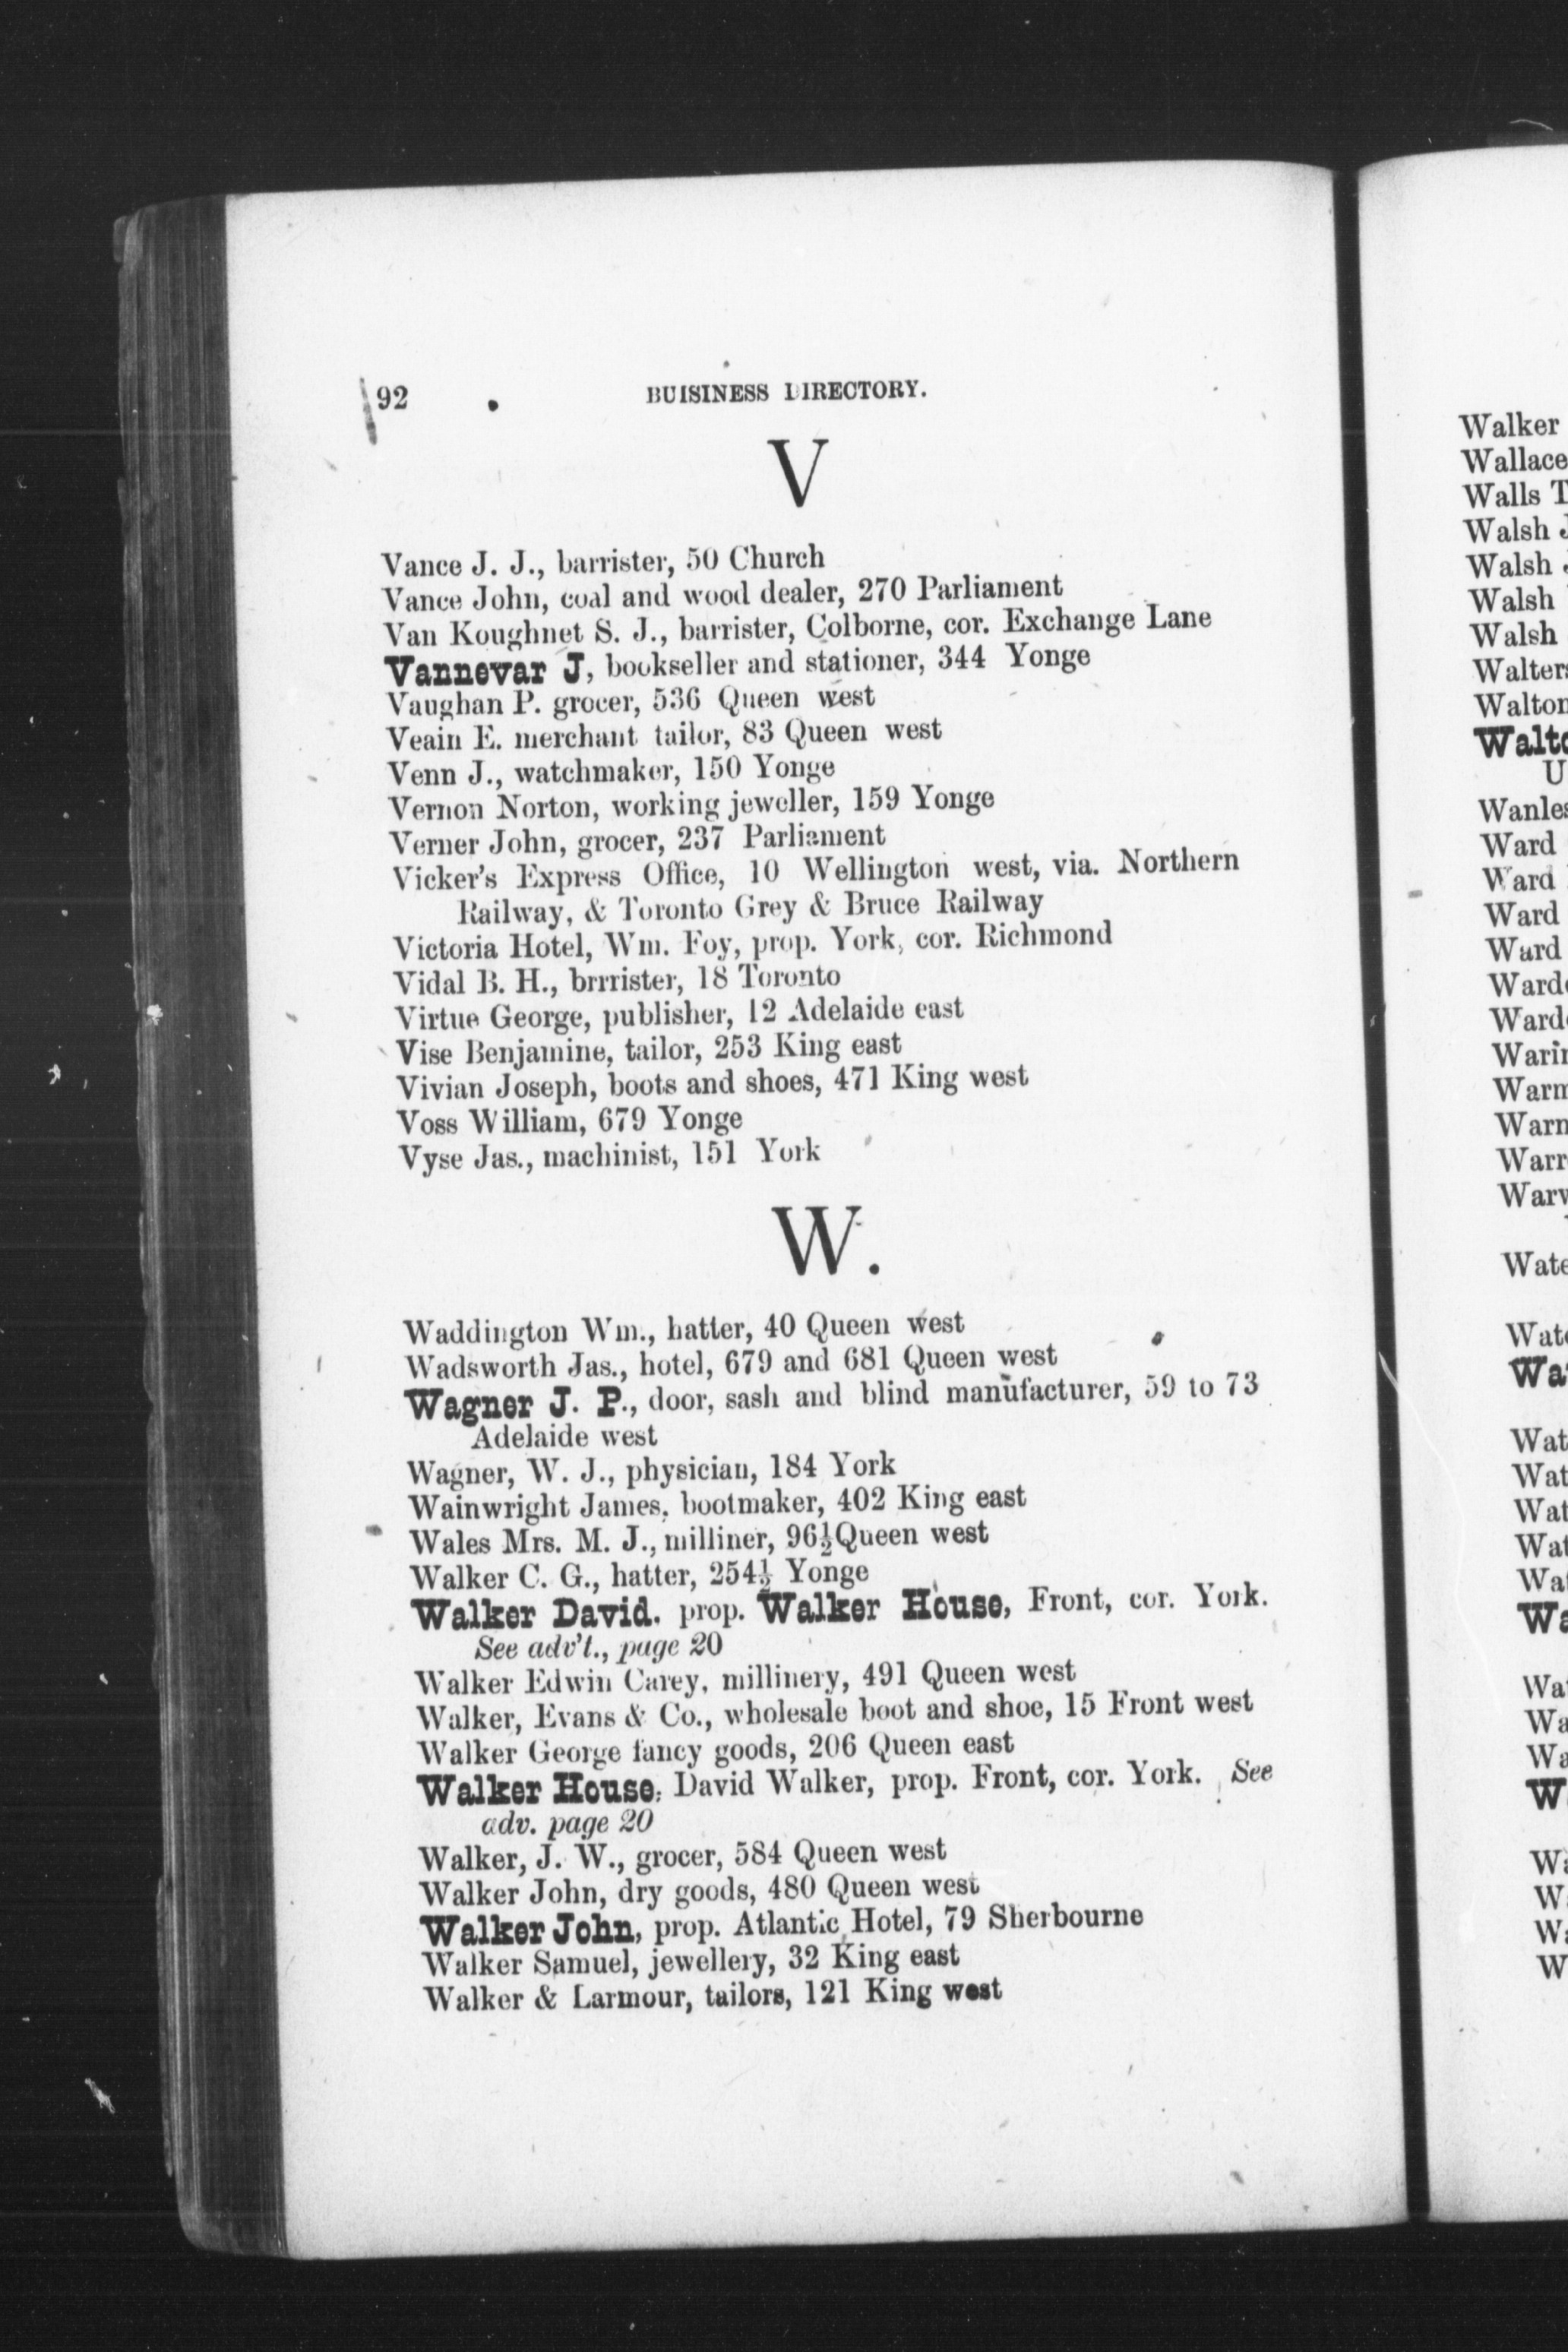 92 BUISINESS DIRECTORY.
V
Vance J. J., barrister, 50 Church
Vance John, coal and wood dealer, 270 Parliament
Van Koughnet S. J., barrister, Colborne, cor. Exchange Lane
Vannevar J, bookseller and stationer, 344 Yonge
Vaughan P. grocer, 536 Queen west
Veain E. merchant tailor, 83 Queen west
Venn J., watchmaker, 150 Yonge
Vernon Norton, working jeweller, 159 Yonge
Verner John, grocer, 237 Parliament
Vicker's Express Office, 10 Wellington west, via. Northern
Railway, & Toronto Grey & Bruce Railway
Victoria Hotel, Wm. Foy, prop. York, cor. Richmond
Vidal B. H., brrrister, 18 Toronto
Virtue George, publisher, 12 Adelaide east
Vise Benjamine, tailor, 253 King east
Vivian Joseph, boots and shoes, 471 King west
Voss William, 679 Yonge
Vyse Jas., machinist, 151 York
W.
Waddington Wm., hatter, 40 Queen west
Wadsworth Jas., hotel, 679 and 681 Queen west
Wagner J. P., door, sash and blind manufacturer, 59 to 73
Adelaide west
Wagner, W. J., physician, 184 York
Wainwright James, bootmaker, 402 King east
Wales Mrs. M. J., milliner, 96½ Queen west
Walker C. G., hatter, 254½ Yonge
Walker David. prop. Walker House, Front, cor. York.
See adv't., page 20
Walker Edwin Carey, millinery, 491 Queen west
Walker, Evans & Co., wholesale boot and shoe, 15 Front west
Walker George fancy goods, 206 Queen east
Walker House, David Walker, prop. Front, cor. York. See
adv. page 20
Walker, J. W., grocer, 584 Queen west
Walker John, dry goods, 480 Queen west
Walker John, prop. Atlantic Hotel, 79 Sherbourne
Walker Samuel, jewellery, 32 King east
Walker & Larmour, tailors, 121 King west
Walker
Wallace
Walls
Walsh
Walsh
Walsh
Walsh
Ward
Ward
Ward
Ward